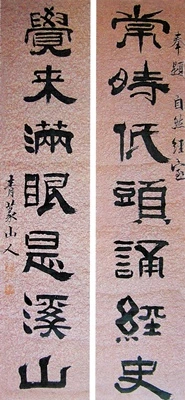 奉題 自然經室
常時低頭誦經史
覺来滿眼是溪山
青蒙山人